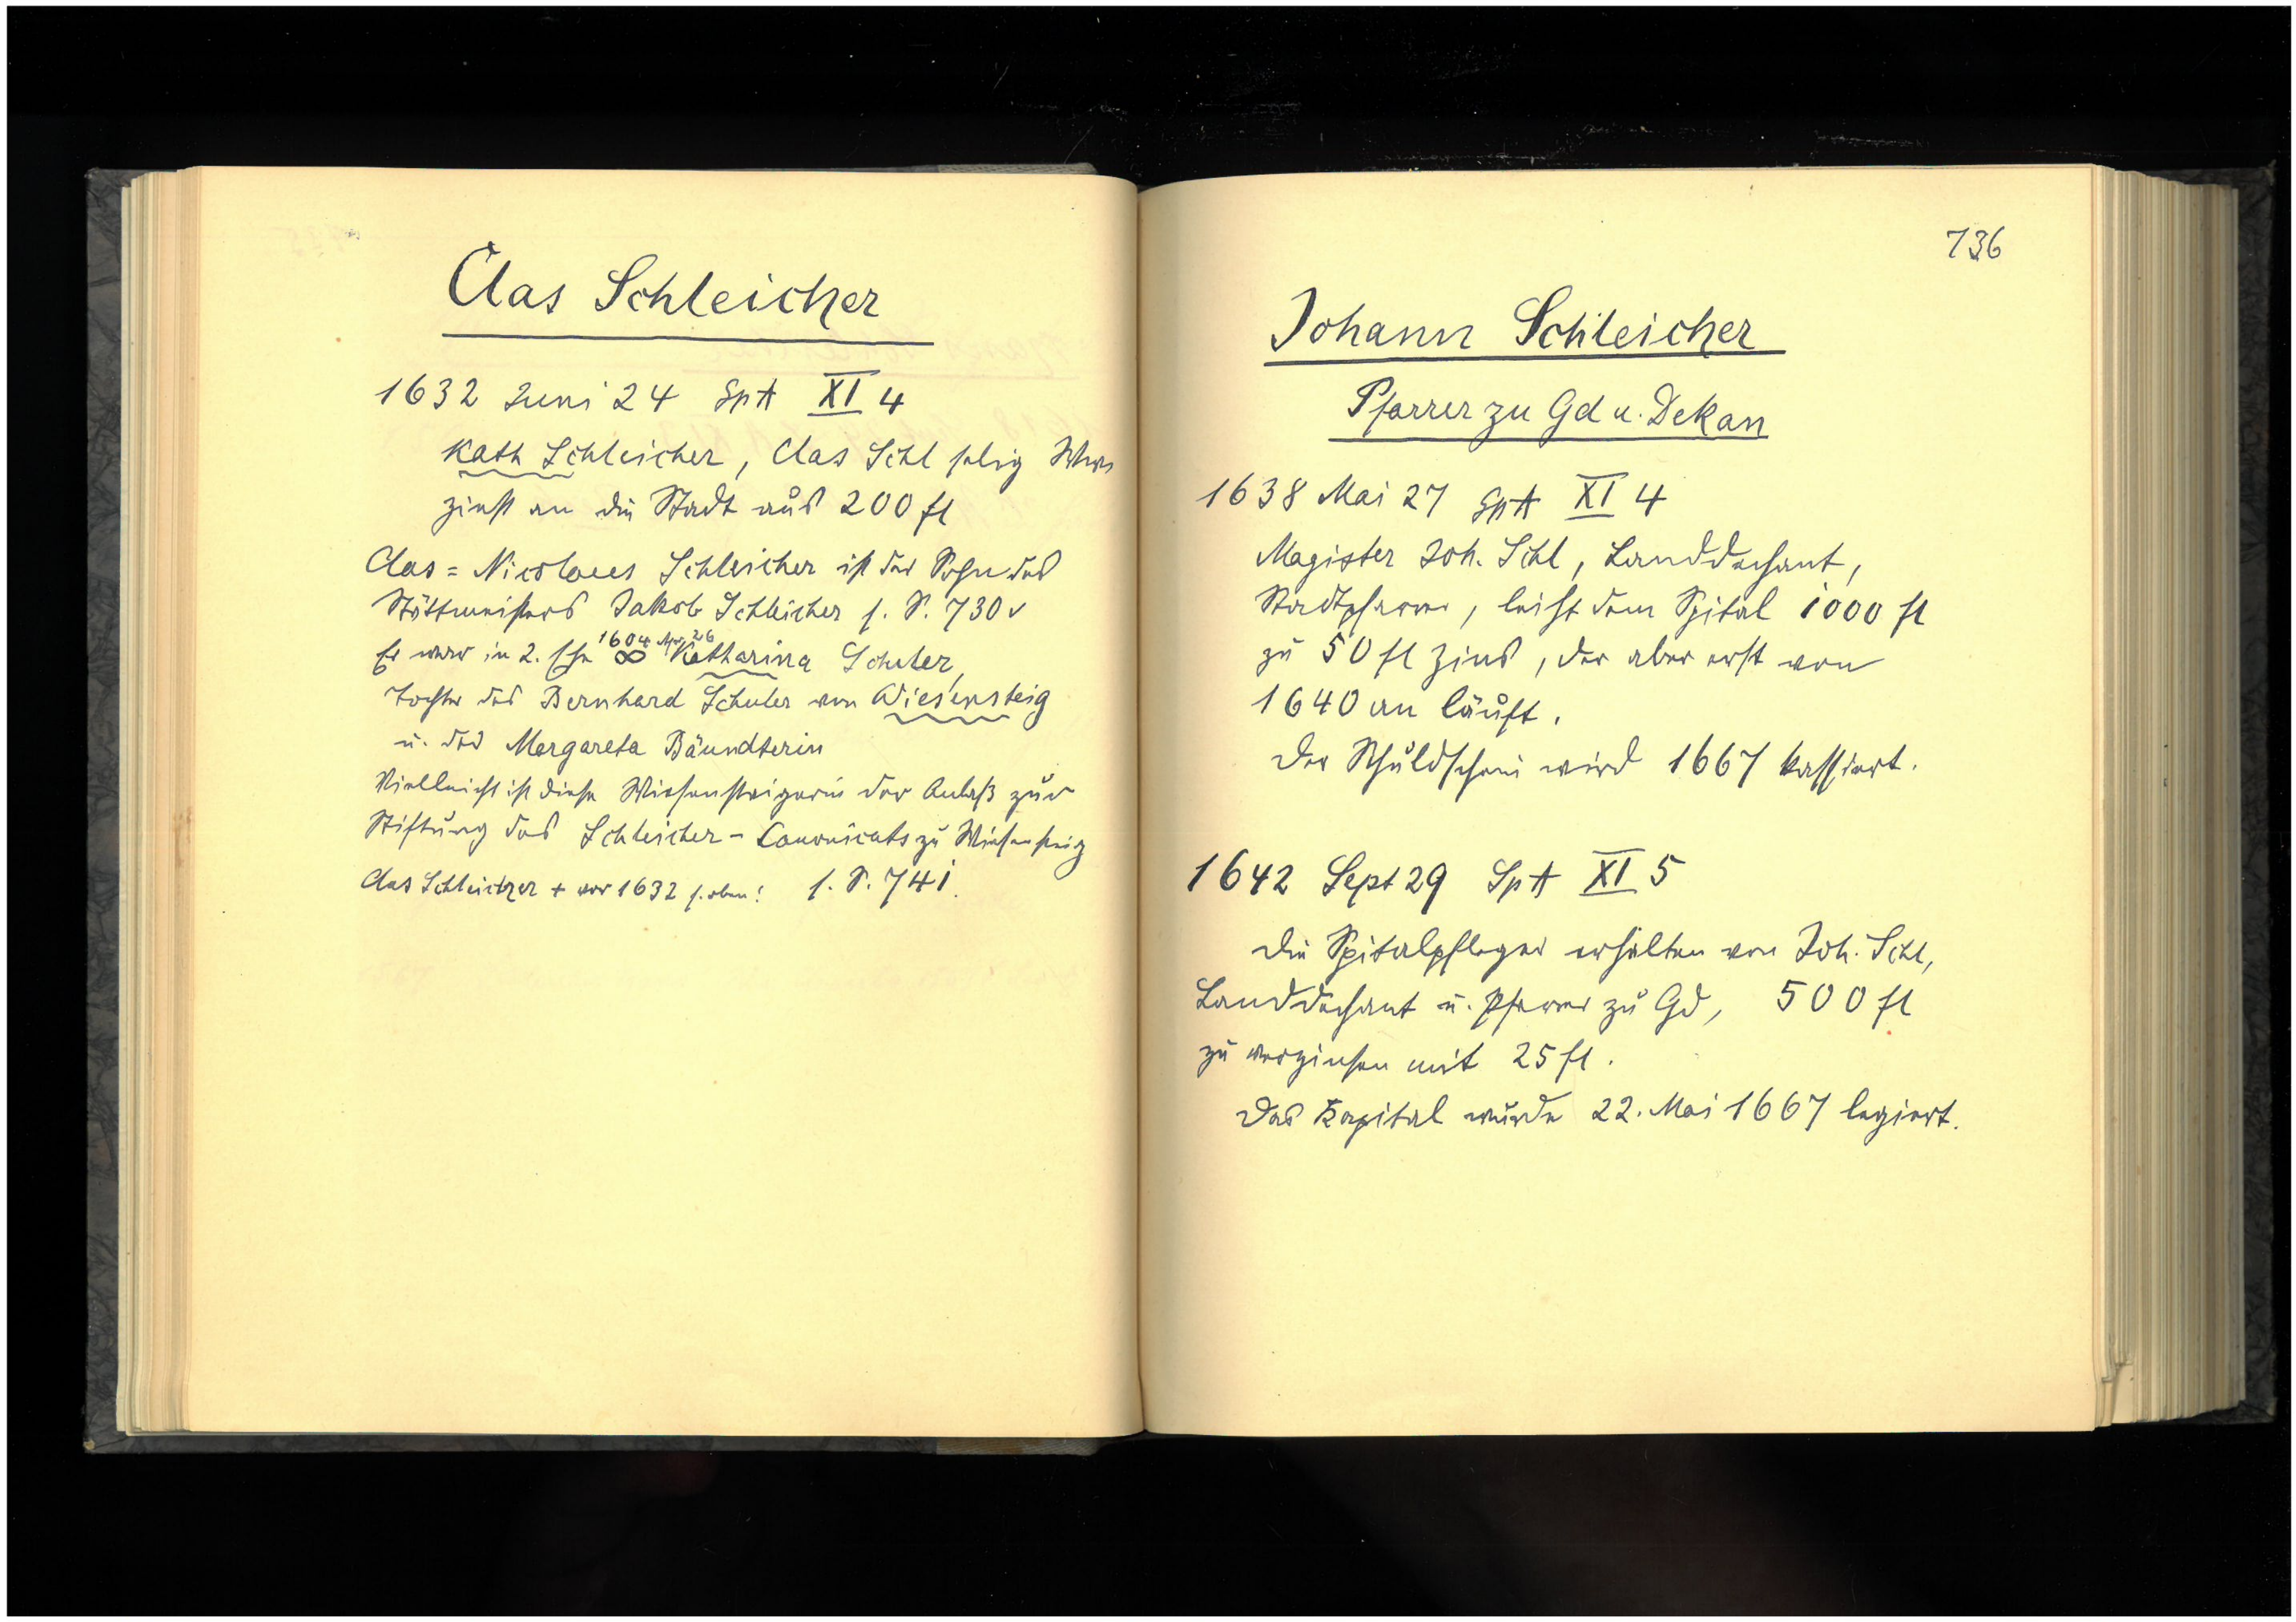 Clas Schleicher
1632 Juni 24 SpA XI 4
Kath Schleicher, Clas Schl selig Witwe
zinst an die Stadt aus 200 fl
Clas = Nicolaus Schleicher ist der Sohn des
Stättmeisters Jakob Schleicher s. S. 730v
Er war in 2. Ehe 1604 Apr 26 ∞ Katharina Schuler,
Tochter des Bernhard Schuler von Wiesensteig
u. der Margareta Bäundterin
Vielleicht ist diese Wiesensteigerin der Anlaß zur
Stiftung des Schleicher-Canonicats zu Wiesensteig
Clas Schleicher + vor 1632 s. oben! s. S. 741.
736
Johann Schleicher
Pfarrer zu Gd u. Dekan
1638 Mai 27 SpA XI 4
Magister Joh. Schl, Landdechant,
Stadtpfarrer, leiht dem Spital 1000 fl
zu 50 fl Zins, der aber erst von
1640 an läuft.
Der Schuldschein wird 1667 kassiert.
1642 Sept 29 SpA XI 5
Die Spitalpfleger erhalten von Joh. Schl,
Landdechant u. Pfarrer zu Gd, 500 fl
zu verzinsen mit 25 fl.
Das Kapital wurde 22. Mai 1667 legiert.